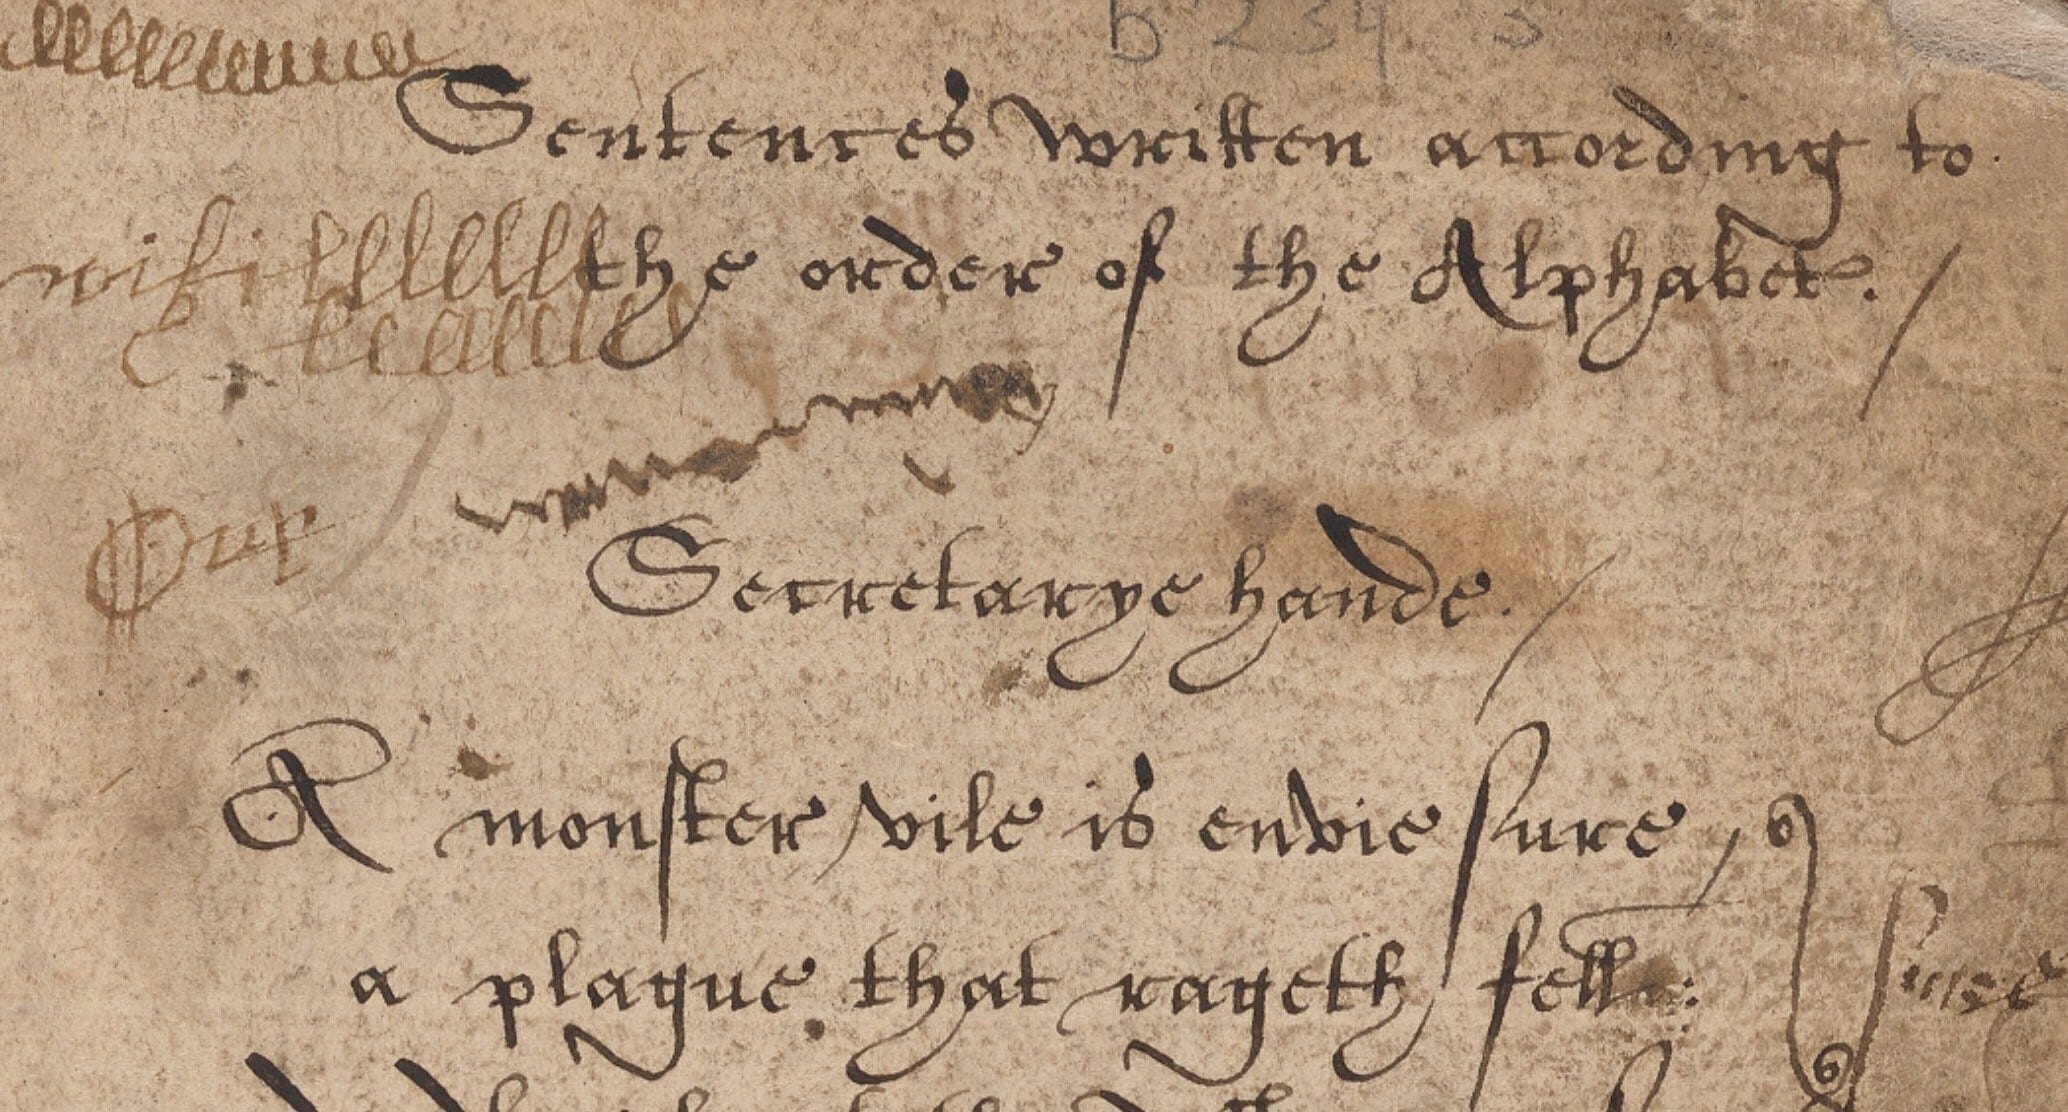 Sentences written according to
the order of the Alphabet. /
Secretarye hande. /
A monster vile is envie sure,
a plague that rageth fell:
sure